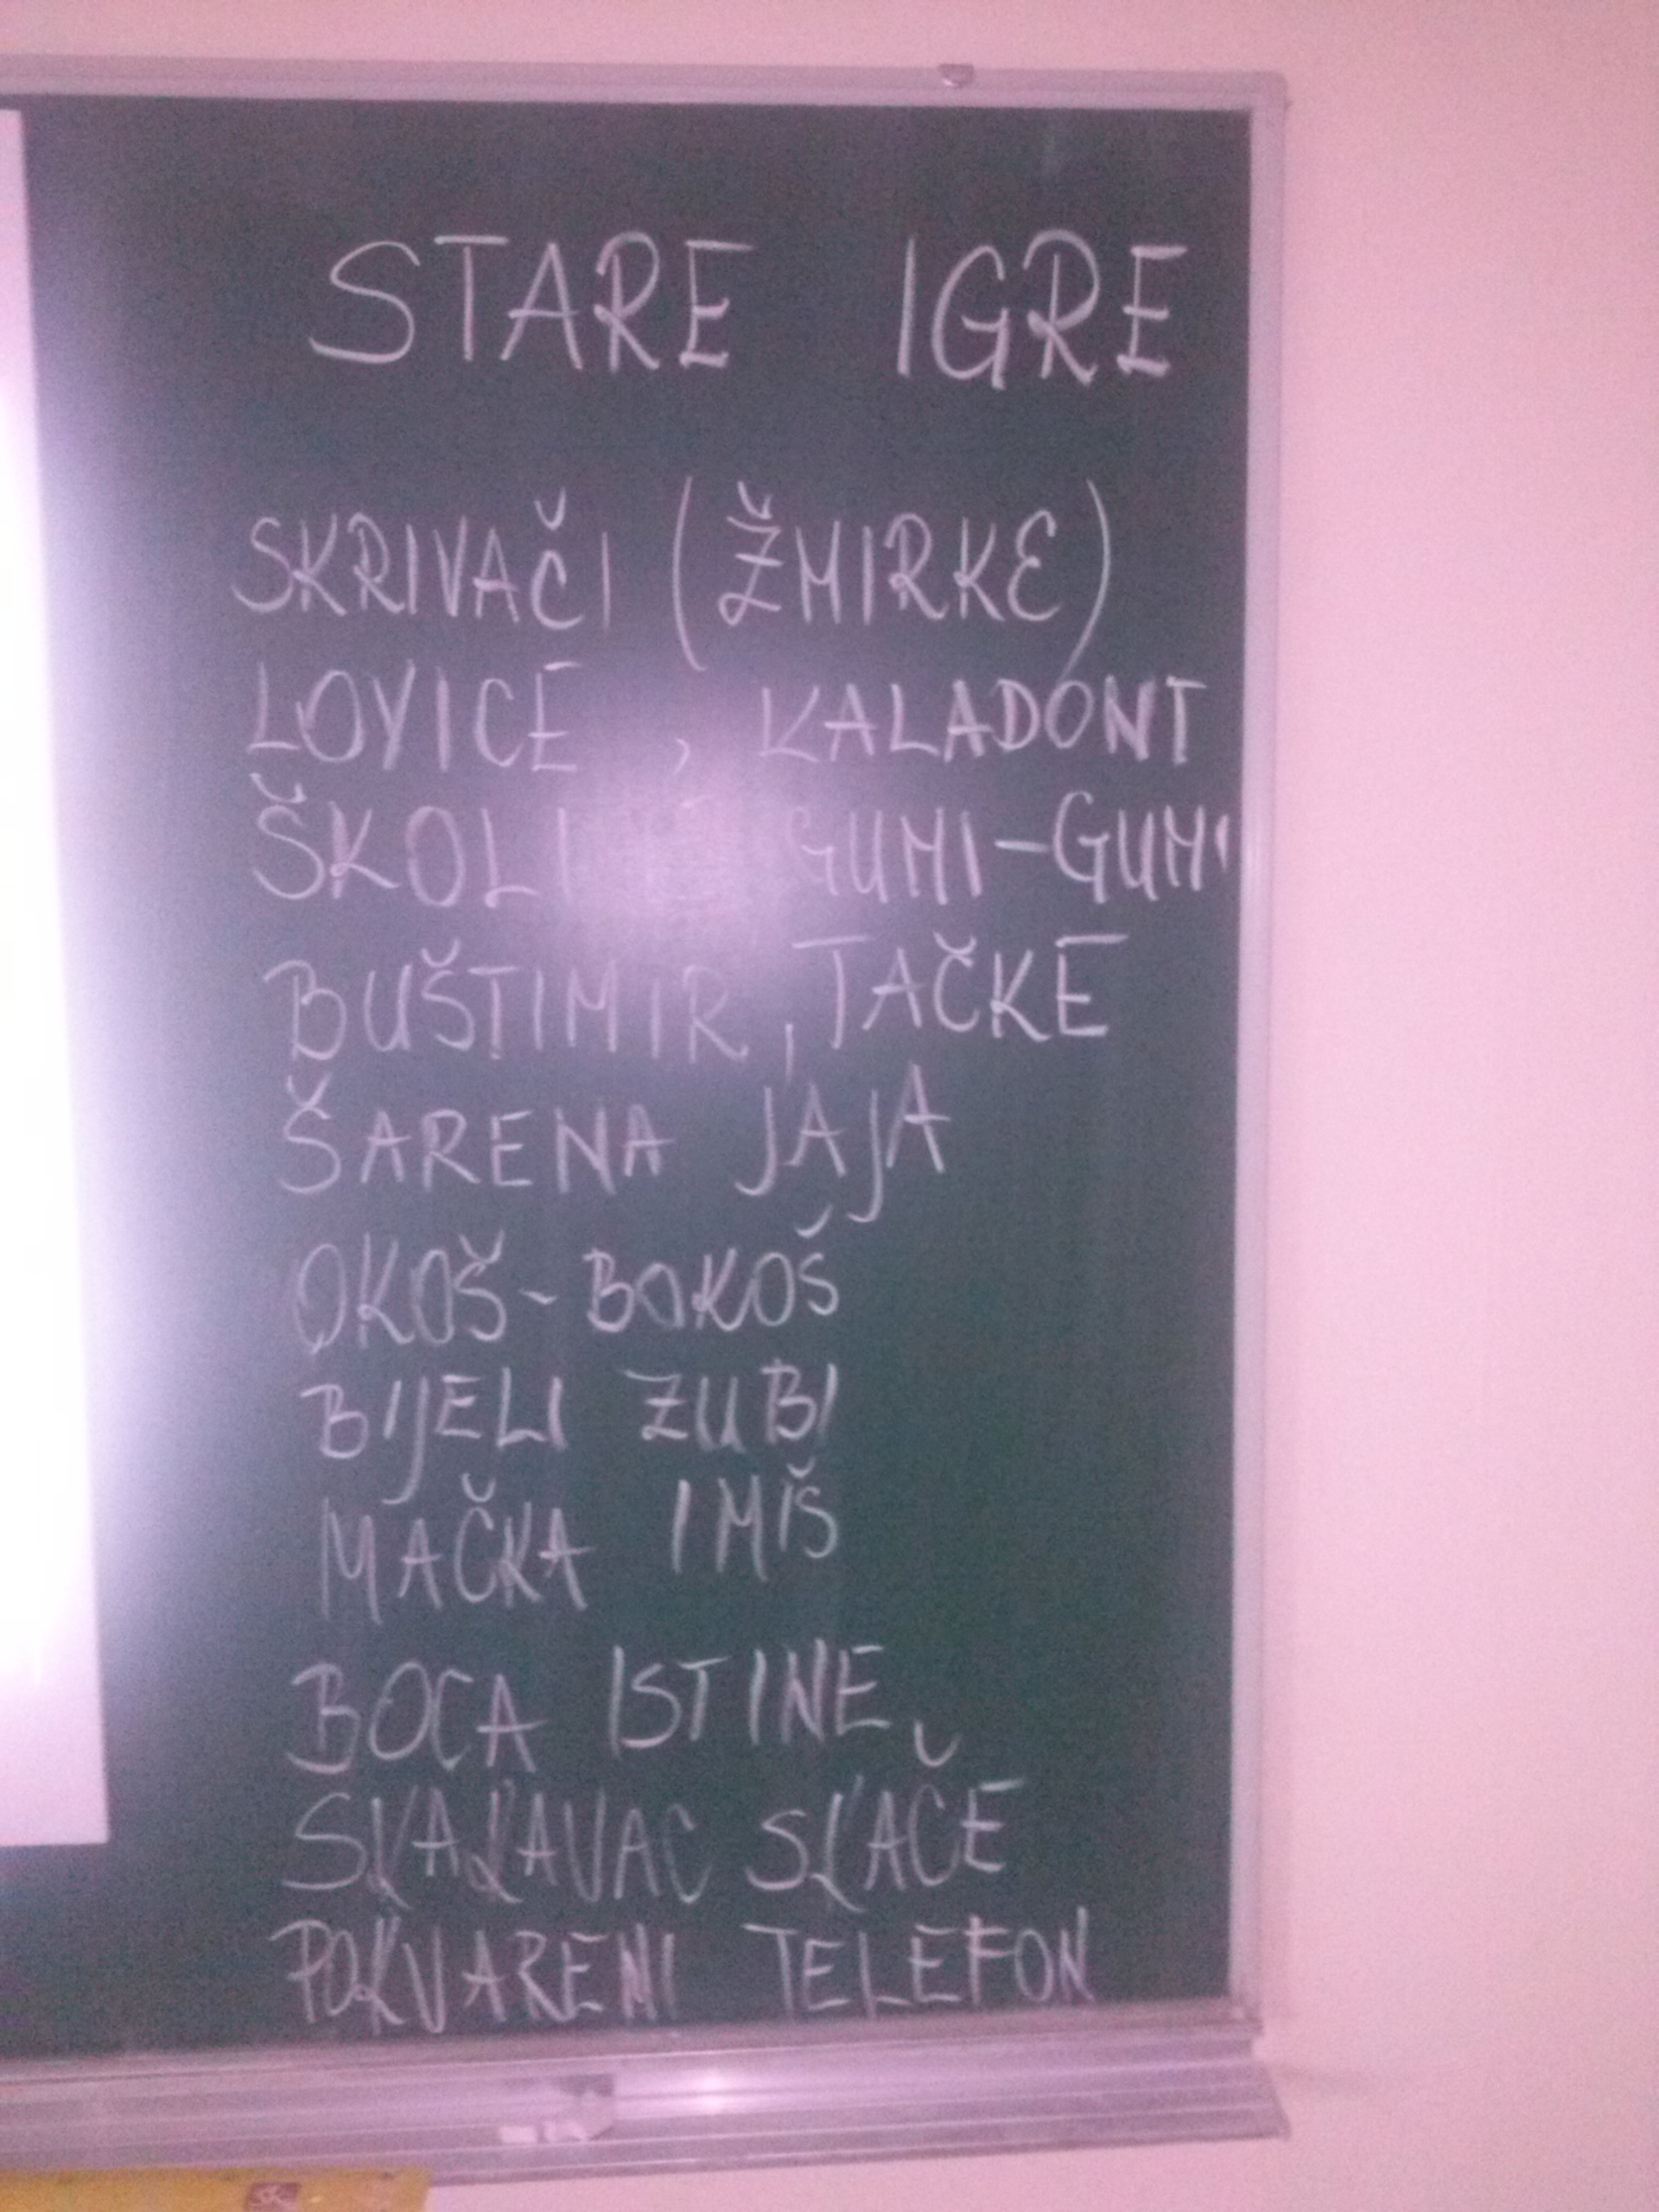 STARE IGRE
SKRIVAČI (ŽMIRKE)
LOVICE, KALADONT
GUMI-GUMI
BUŠTIMIR, TAČKE
ŠARENA JAJA
OKOŠ-BOKOŠ
BIJELI ZUBI
MAČKA I MIŠ
BOCA ISTINE
SKAKAVAC SKAČE
POKVARENI TELEFON